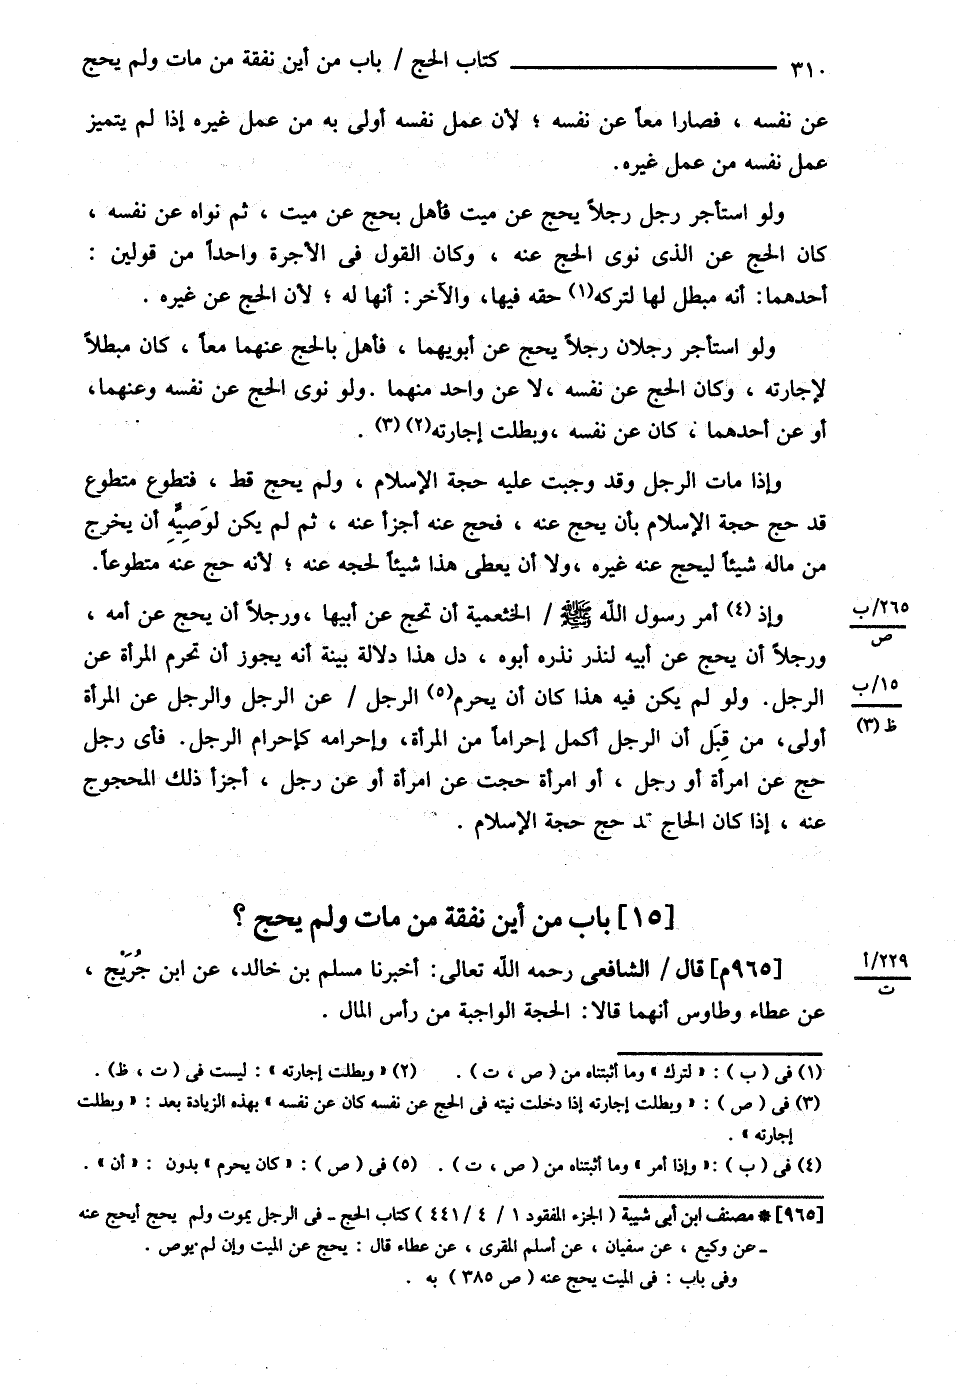 ٣١٠ ـــــــــــــ كتاب الحج / باب من أين نفقة من مات ولم يحج
عن نفسه ، فصارا معاً عن نفسه ؛ لأن عمل نفسه أولى به من عمل غيره إذا لم يتميز
عمل نفسه من عمل غيره.
ولو استأجر رجل رجلاً يحج عن ميت فأهل بحج عن ميت ، ثم نواه عن نفسه ،
كان الحج عن الذى نوى الحج عنه ، وكان القول فى الأجرة واحداً من قولين :
أحدهما: أنه مبطل لها لتركه(١) حقه فيها، والآخر: أنها له ؛ لأن الحج عن غيره .
ولو استأجر رجلان رجلاً يحج عن أبويهما ، فأهل بالحج عنهما معاً ، كان مبطلاً
لإجارته ، وكان الحج عن نفسه ،لا عن واحد منهما .ولو نوى الحج عن نفسه وعنهما،
أو عن أحدهما ، كان عن نفسه ،وبطلت إجارته(٢) (٣) .
وإذا مات الرجل وقد وجبت عليه حجة الإسلام ، ولم يحج قط ، فتطوع متطوع
قد حج حجة الإسلام بأن يحج عنه ، فحج عنه أجزأ عنه ، ثم لم يكن لوَصِيِّه أن يخرج
من ماله شيئاً ليحج عنه غيره ،ولا أن يعطى هذا شيئاً لحجه عنه ؛ لأنه حج عنه متطوعاً.
وإذ (٤) أمر رسول اللّه ﷺ / الخثعمية أن تحج عن أبيها ،ورجلاً أن يحج عن أمه ،
٢٦٥/ب
ص
ورجلاً أن يحج عن أبيه لنذر نذره أبوه ، دل هذا دلالة بينة أنه يجوز أن تحرم المرأة عن
الرجل. ولو لم يكن فيه هذا كان أن يحرم(٥) الرجل / عن الرجل والرجل عن المرأة
١٥/ب
ظ (٣)
أولى، من قِبَل أن الرجل أكمل إحراماً من المرأة، وإحرامه كإحرام الرجل. فأى رجل
حج عن امرأة أو رجل ، أو امرأة حجت عن امرأة أو عن رجل ، أجزأ ذلك المحجوج
عنه ، إذا كان الحاج قد حج حجة الإسلام .
[١٥] باب من أين نفقة من مات ولم يحج ؟
[٩٦٥م] قال / الشافعى رحمه اللّه تعالى: أخبرنا مسلم بن خالد، عن ابن جُرَيْج ،
٢٢٩/أ
ت
عن عطاء وطاوس أنهما قالا: الحجة الواجبة من رأس المال .
(١) فى ( ب ) : « لترك » وما أثبتناه من ( ص ، ت ) . (٢) « وبطلت إجارته » : ليست فى ( ت ، ظ) .
(٣) فى ( ص ) : « وبطلت إجارته إذا دخلت نيته فى الحج عن نفسه كان عن نفسه » بهذه الزيادة بعد : « وبطلت
إجارته » .
(٤) فى ( ب ) :« وإذا أمر » وما أثبتناه من ( ص ، ت ) . (٥) فى ( ص ) : « كان يحرم » بدون : « أن » .
[٩٦٥] * مصنف ابن أبى شيبة ( الجزء المفقود ١ / ٤ / ٤٤١ ) كتاب الحج ـ فى الرجل يموت ولم يحج أيحج عنه
ـ عن وكيع ، عن سفيان ، عن أسلم المقرى ، عن عطاء قال : يحج عن الميت وإن لم يوص .
وفى باب : فى الميت يحج عنه ( ص ٣٨٥ ) به .